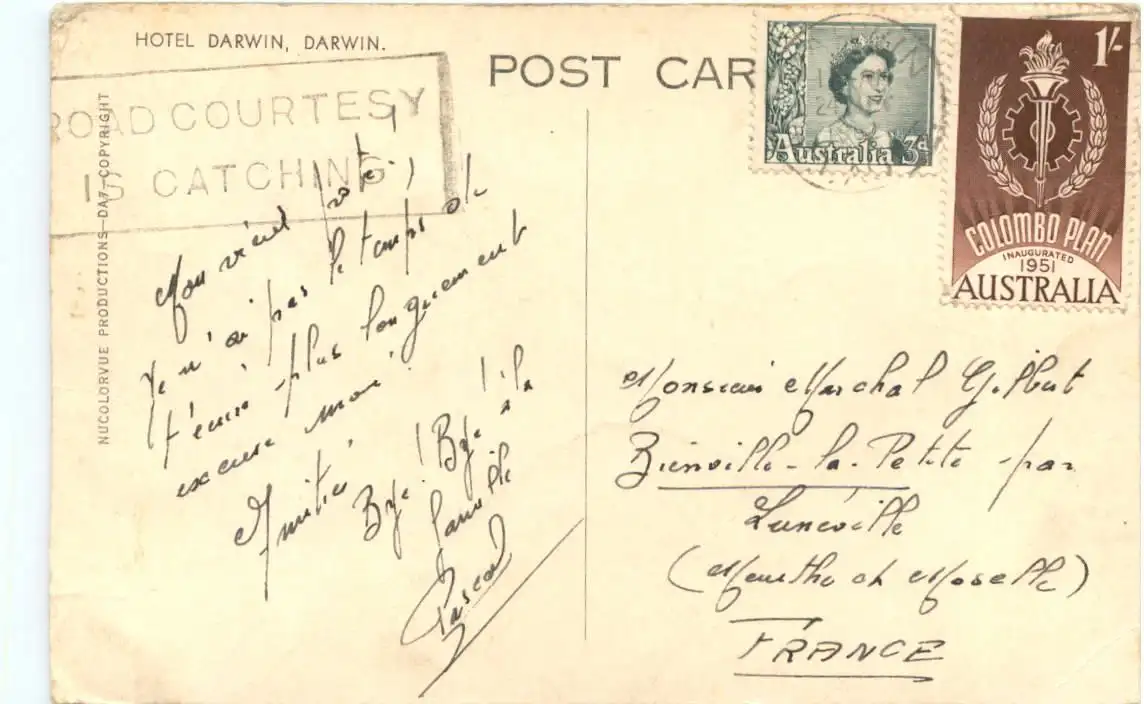 HOTEL DARWIN, DARWIN.
POST CAR
ROAD COURTESY
IS CATCHING
NUCOLORVUE PRODUCTIONS—DA7—COPYRIGHT
Australia 3d
1/-
COLOMBO PLAN
INAUGURATED
1951
AUSTRALIA
Mon vieux
Je n'ai pas le temps de
t'écrire plus longuement
excuse moi !
Amitiés
Bye ! Bye ! à la
famille
Pascal
Monsieur Marchal Gilbert
Bienville-la-Petite par
Lunéville
(Meurthe et Moselle)
FRANCE